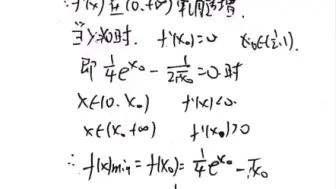 ∴f'(x)在(0,+∞)单调递增.
∃x₀时. f'(x₀)=0 x₀∈(½,1).
即 ¼e^{x₀} - 1/(2√x₀) =0时
x∈(0.x₀) f'(x)<0.
x∈(x₀+∞) f'(x₀)>0
∴f(x)min=f(x₀)=¼e^{x₀}-√x₀